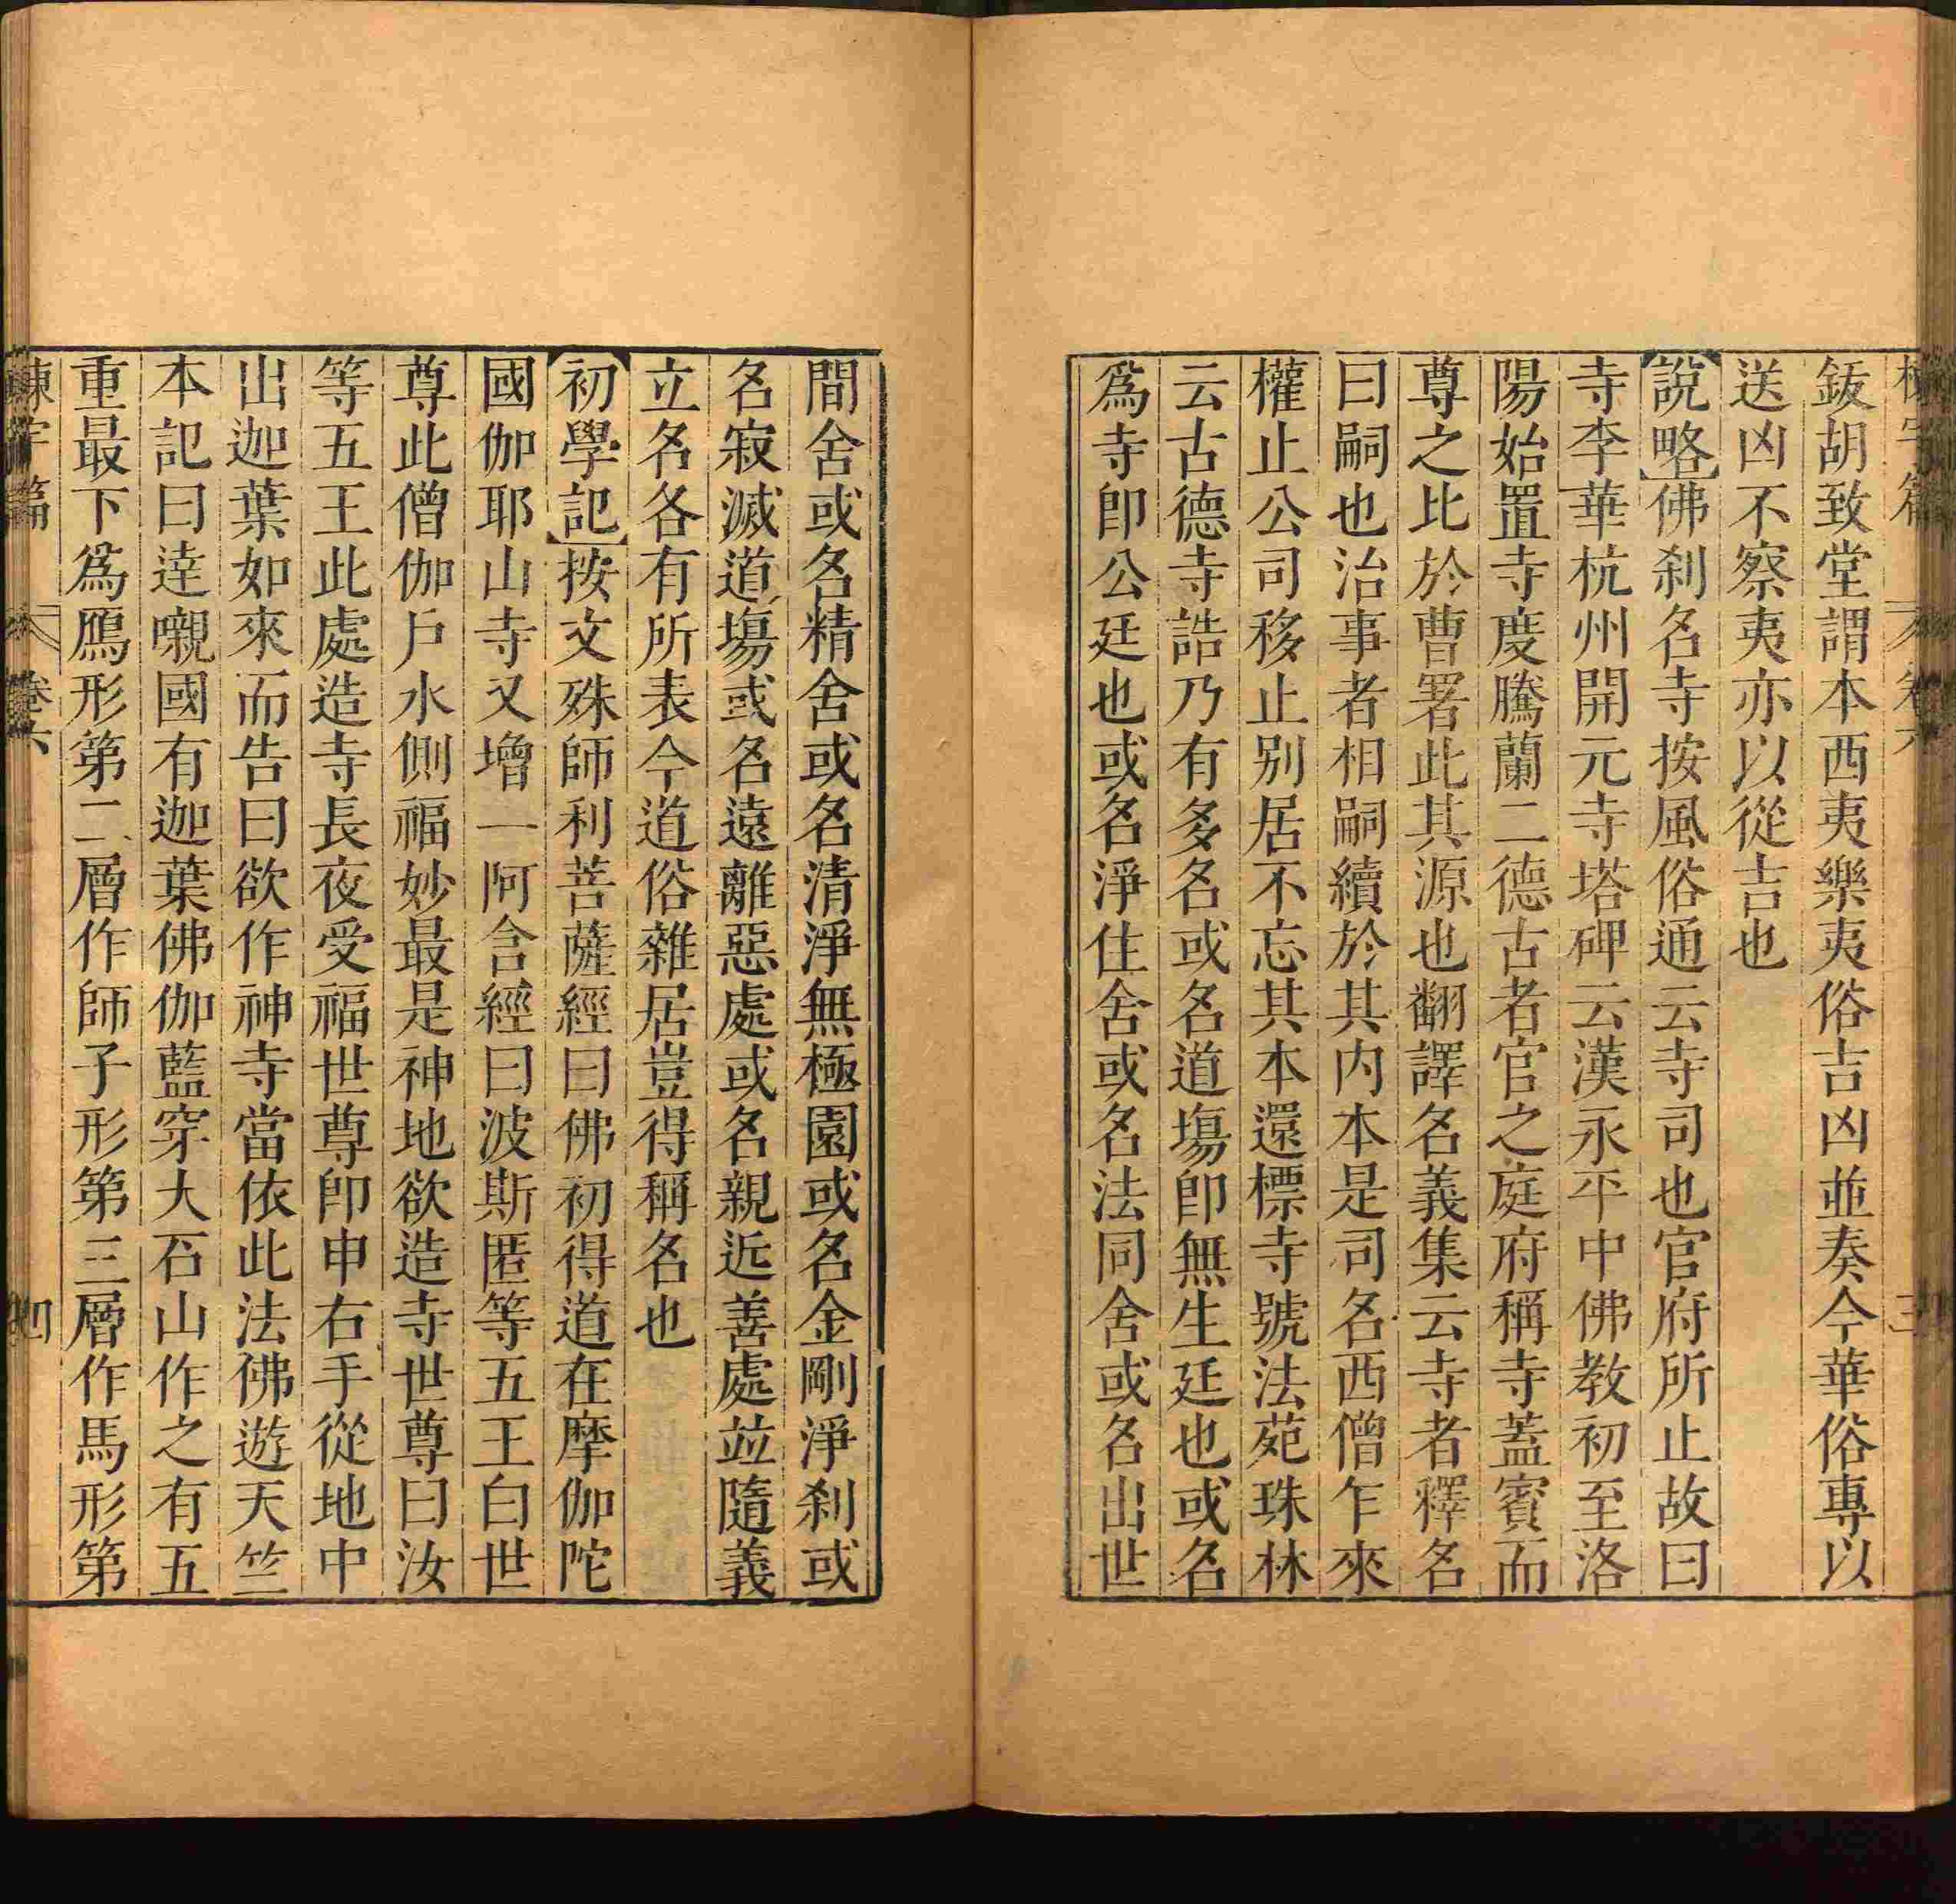 鈸胡致堂謂本西夷樂夷俗吉凶並奏今華俗專以
送凶不察夷亦以從吉也
說略佛刹名寺按風俗通云寺司也官府所止故曰
寺李華杭州開元寺塔碑云漢永平中佛教初至洛
陽始置寺度騰蘭二德古者官之庭府稱寺蓋賓而
尊之比於曹署此其源也翻譯名義集云寺者釋名
曰嗣也治事者相嗣續於其内本是司名西僧乍來
權止公司移止别居不忘其本還標寺號法苑珠林
云古德寺誥乃有多名或名道場即無生廷也或名
爲寺即公廷也或名淨住舍或名法同舍或名出世
間舍或名精舍或名清淨無極園或名金剛淨刹或
名寂滅道塲或名遠離惡處或名親近善處並隨義
立名各有所表今道俗雜居豈得稱名也
初學記按文殊師利菩薩經曰佛初得道在摩伽陀
國伽耶山寺又增一阿含經曰波斯匿等五王白世
尊此僧伽戶水側福妙最是神地欲造寺世尊曰汝
等五王此處造寺長夜受福世尊即申右手從地中
出迦葉如來而告曰欲作神寺當依此法佛遊天竺
本記曰達嚫國有迦葉佛伽藍穿大石山作之有五
重最下爲鴈形第二層作師子形第三層作馬形第
卷六
四